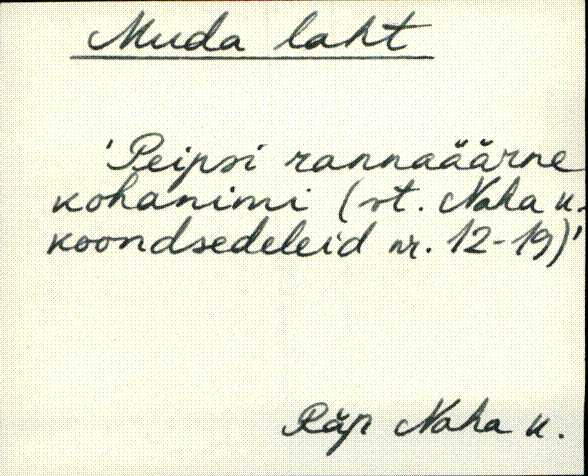 Muda laht
'Peipsi rannaäärne
kohanimi (vt. Naha k.
koondsedeleid nr. 12-19)'
Räp Naha k.